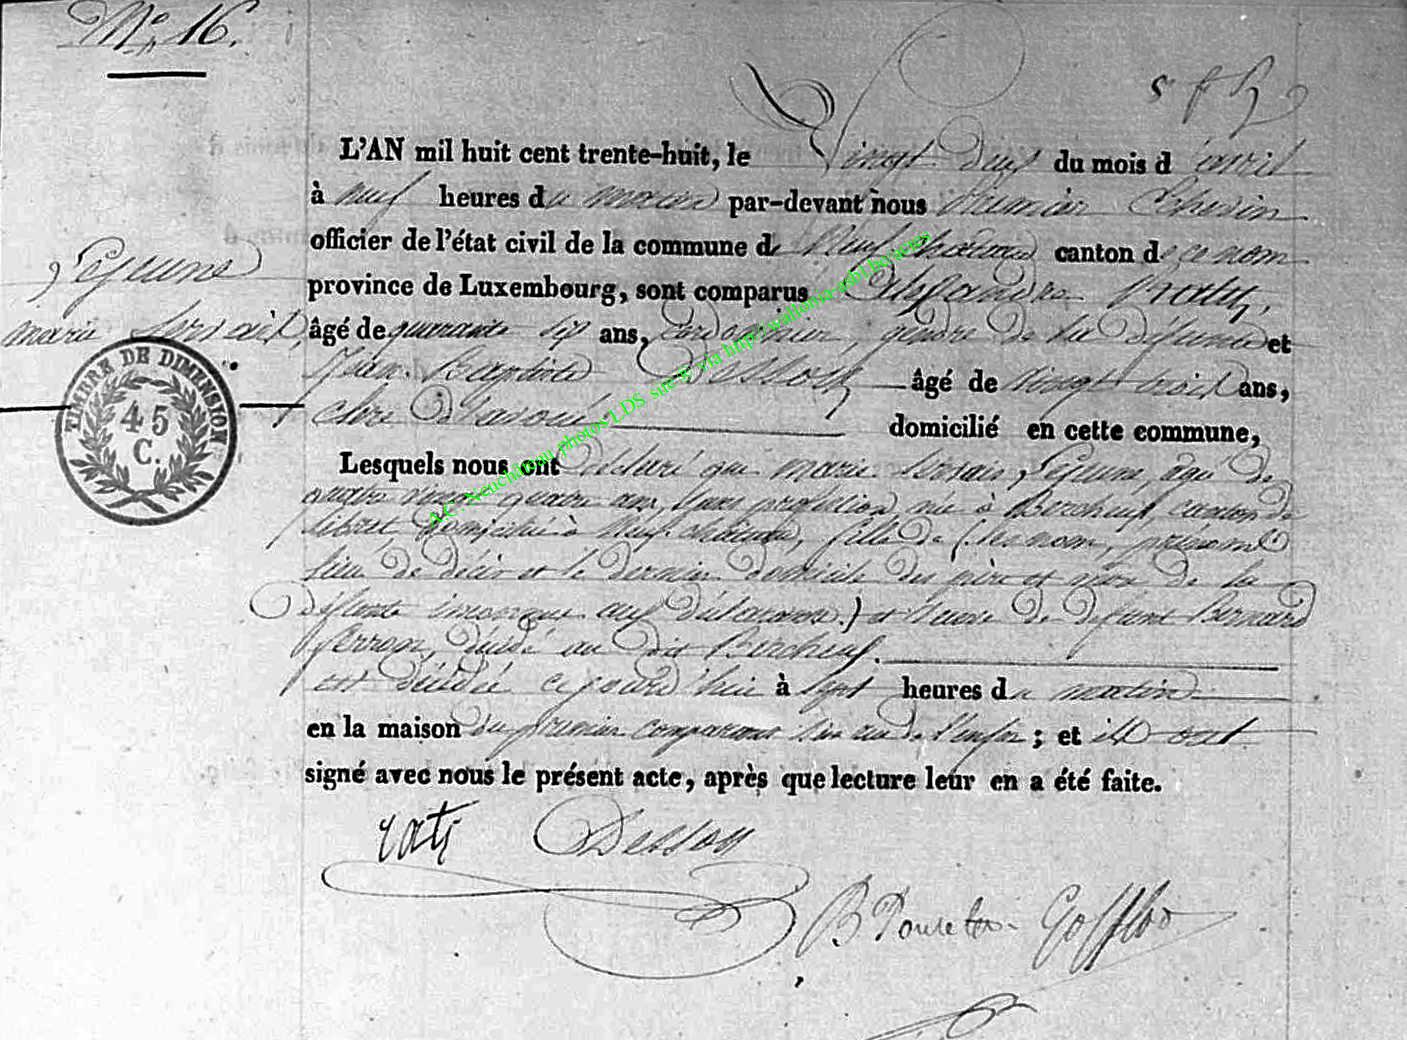 N° 16.
L'AN mil huit cent trente-huit, le vingt deux du mois d'avril
à neuf heures du matin par-devant nous Premier Echevin
officier de l'état civil de la commune de Neufchâteau canton de ce nom
province de Luxembourg, sont comparus Alexandre
Lejeune
marie
âgé de quarante six ans, cordonnier, gendre de la défunte et
Jean Baptiste âgé de vingt trois ans,
domicilié en cette commune,
Lesquels nous ont déclaré que marie Lejeune, âgé de
quatre vingt quatre ans, sans profession, née à Bercheux, canton de
Sibret domiciliée à Neufchâteau, fille de (les nom, prénoms
lieu de décès et le dernier domicile des père et mère de la
défunte inconnus aux déclarans.) et veuve de défunt Bernard
décédé au dit Bercheux.
est décédée ce jourd'hui à sept heures du matin
en la maison du premier comparant ; et ils ont
signé avec nous le présent acte, après que lecture leur en a été faite.
TIMBRE DE DIMENSION
45
C.
A.C. Neuchâteau photos LDS site © via http://wallonia-asbl.be/segn